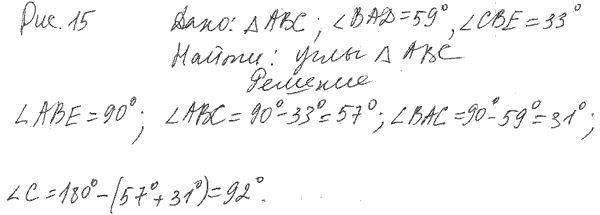 Рис. 15 Дано: △ABC; ∠BAD=59°, ∠CBE=33°
Найти: углы △ABC
Решение
∠ABE=90°; ∠ABC=90°-33°=57°; ∠BAC=90°-59°=31°;
∠C=180°-(57°+31°)=92°.